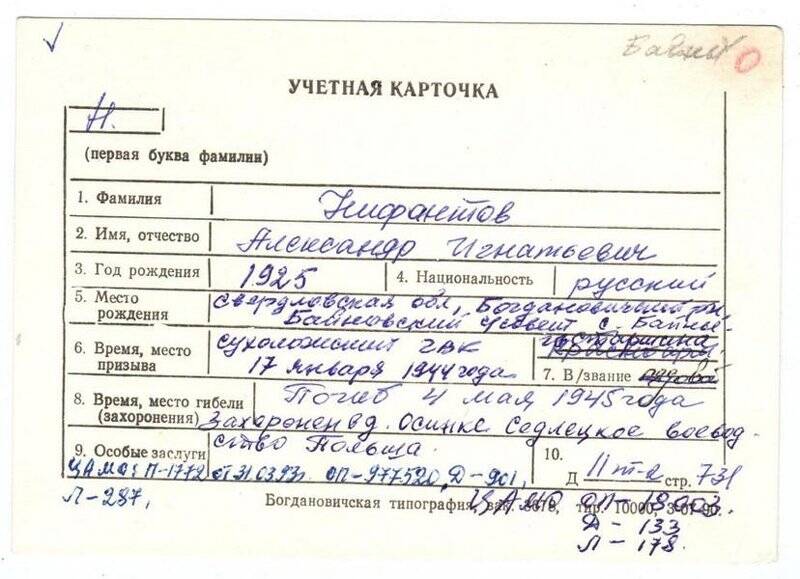 Байны О
УЧЕТНАЯ КАРТОЧКА
Н.
(первая буква фамилии)
1. Фамилия Нифантов
2. Имя, отчество Александр Игнатьевич
3. Год рождения 1925 4. Национальность русский
5. Место рождения Свердловская обл, Богдановичский рн,
Байновский с/совет с. Байны
6. Время, место призыва Сухоложский ГВК
17 января 1944 года
7. В/звание гв. старшина
8. Время, место гибели (захоронения) Погиб 4 мая 1945 года
Захоронен в д. Осинке Седлецкое воевод-
ство Польша.
9. Особые заслуги
10.
Д II т-2 стр. 731
ЦАМО П-1772 от 31.03.93г. ОП-977520, Д-901,
Л-287,
Богдановичская типография, зак. 3678, тир. 10000, 3-01-90.
ЦАМО ОП-18003.
Д-133
Л-178.